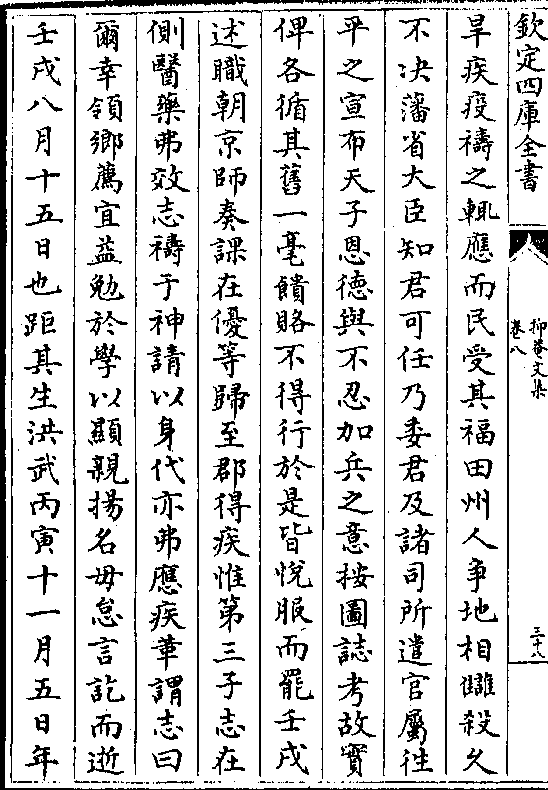 欽定四庫全書
抑菴文集
卷八
三十八
旱疾疫禱之輒應而民受其福田州人争地相讎殺久
不決藩省大臣知君可任乃委君及諸司所遣官屬徃
平之宣布天子恩德與不忍加兵之意按圖誌考故實
俾各循其舊一毫饋賂不得行於是皆悅服而罷壬戌
述職朝京師奏課在優等歸至郡得疾惟第三子志在
側醫藥弗效志禱于神請以身代亦弗應疾革謂志曰
爾幸領鄉薦宜益勉於學以顯親揚名毋怠言訖而逝
壬戌八月十五日也距其生洪武丙寅十一月五日年